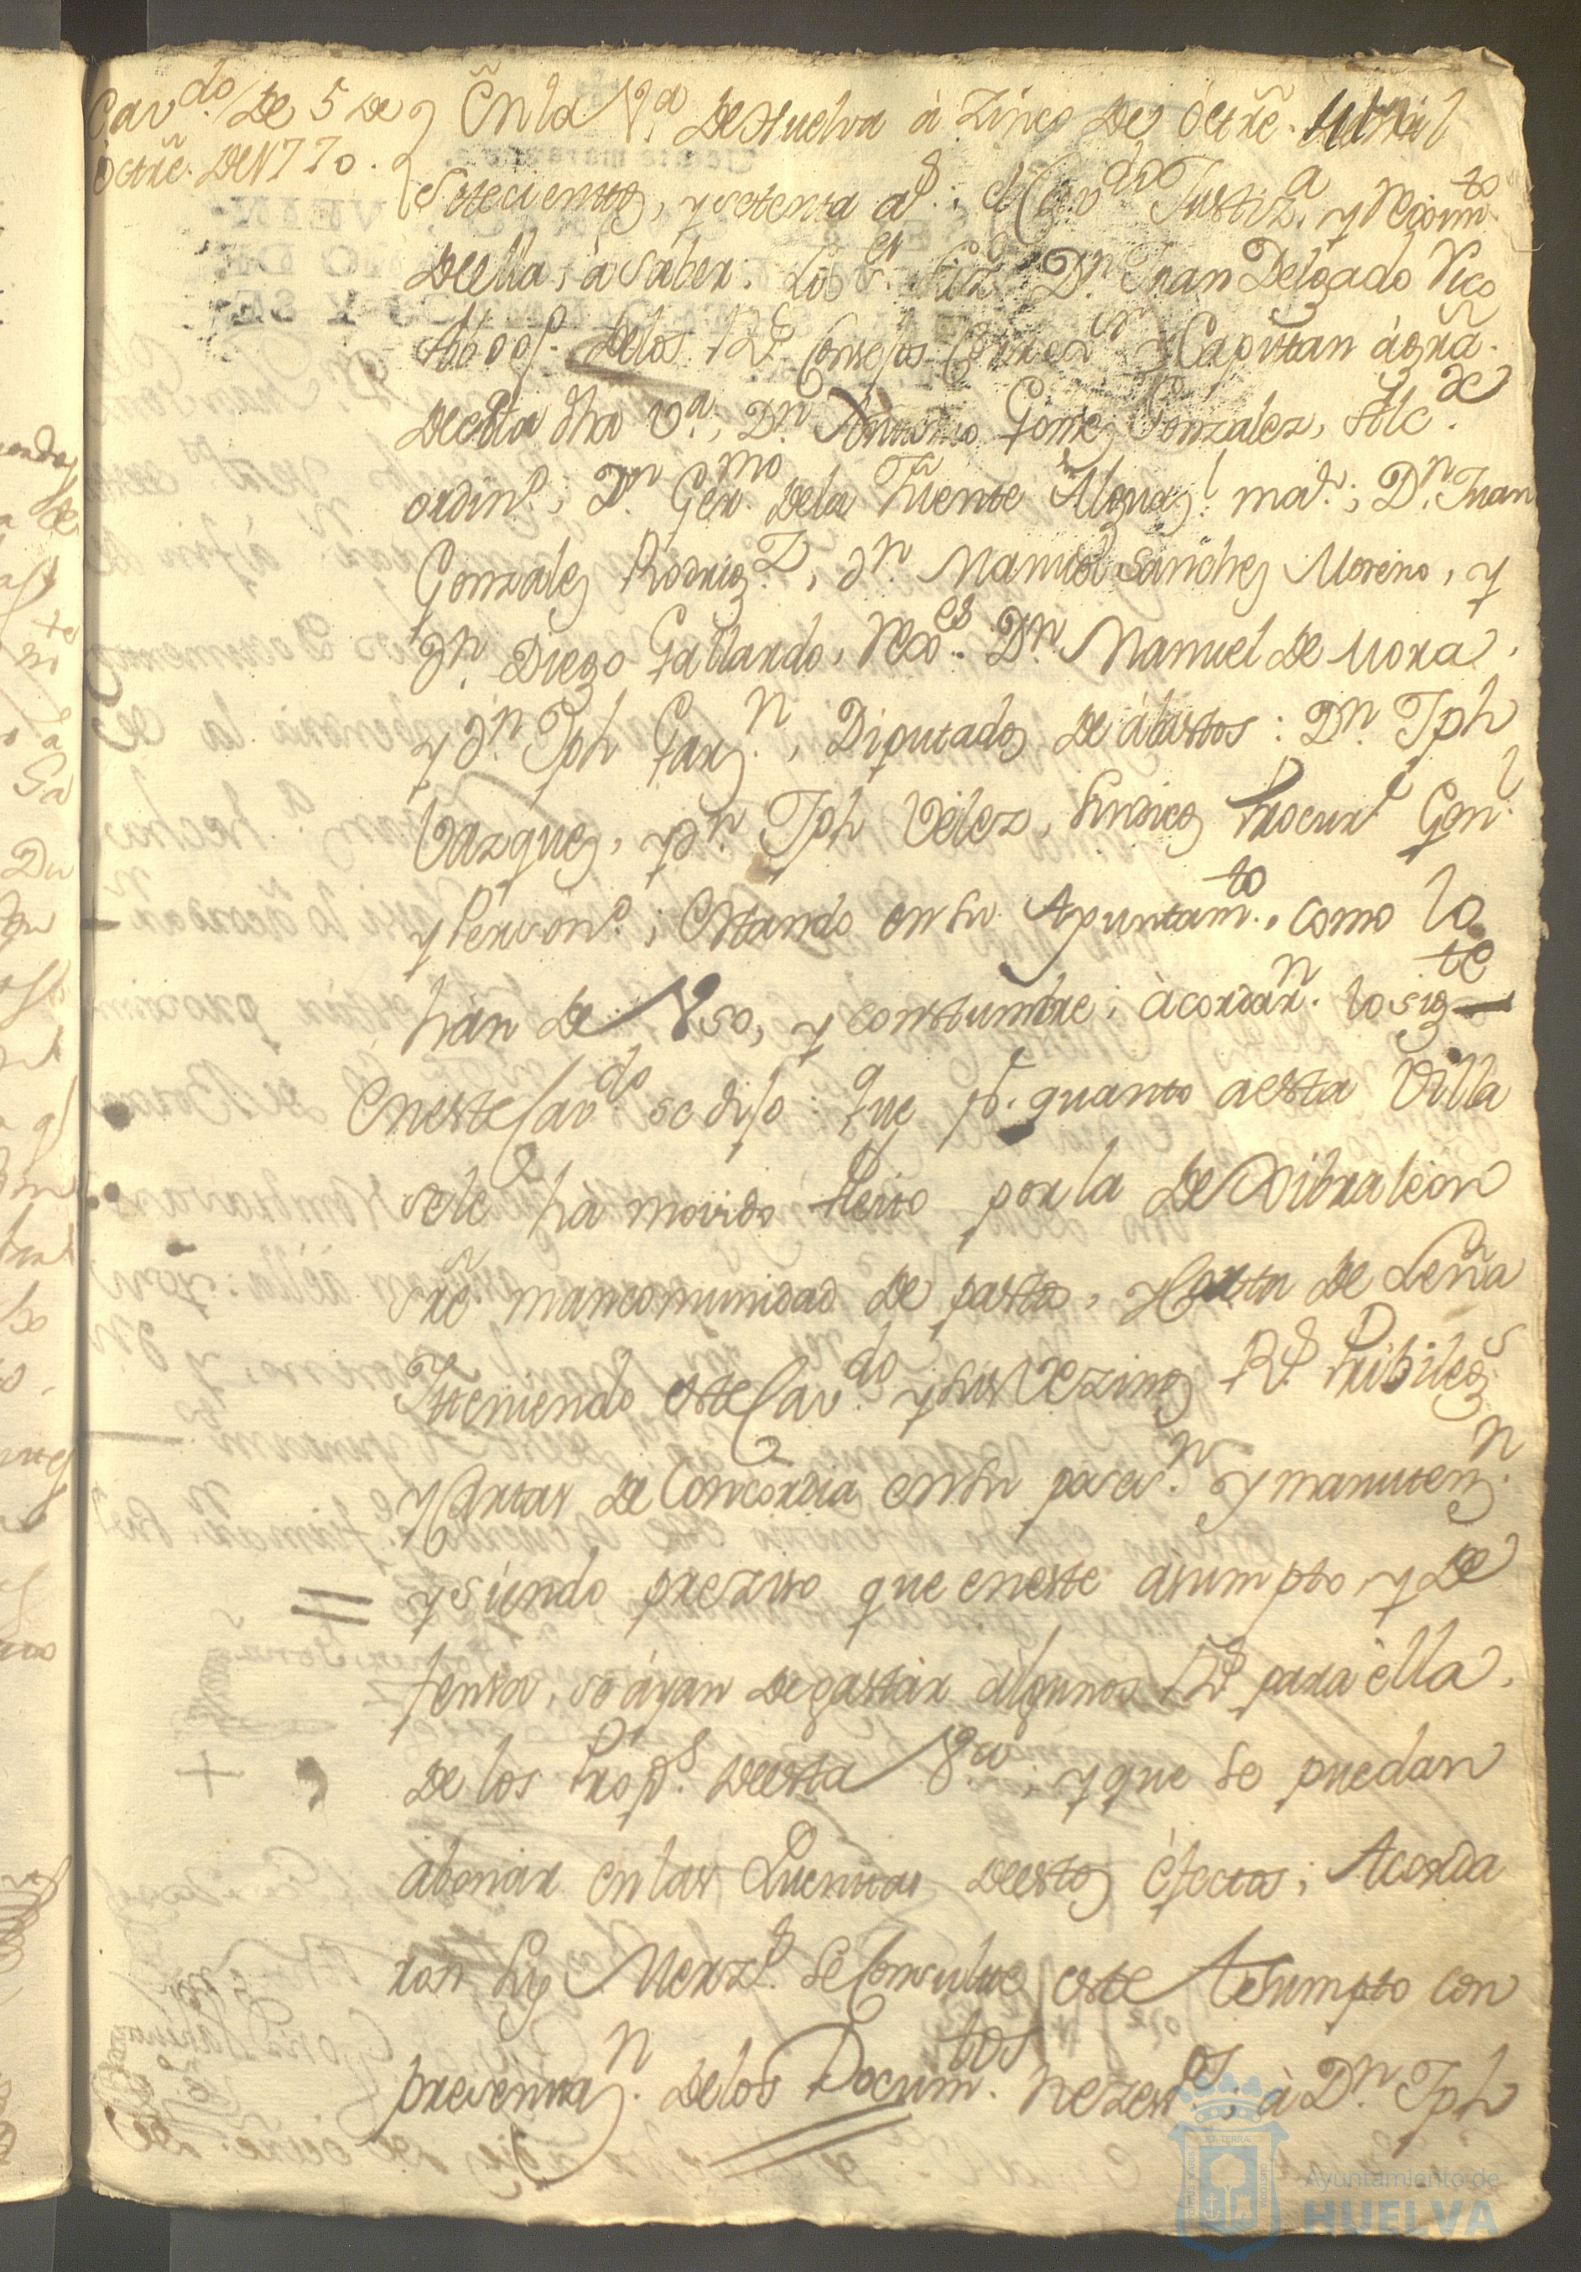 Cav.do De 5 De
Octre. De 1770.
En la V.a De Huelva à Zinco De Octre. de mil
Setecientos, y setenta a.s; el Cav.do Justiz.a, y Reximto.
De ella, à saver: Los S.es Liz.do D.n Juan Delgado Vico
Abog.o de los R.s Consejos Correx.r y Capitan àgrã.
De esta dha V.a; D.n Antonio Gomez Gonzalez, Alc.de
ordin.o; D.n Ger.mo De la Fuente Alguaz.l mar.; D.n Juan
Gonzalez Rodrig.z, D.n Manuel Sanchez Moreno, y
D.n Diego Gallardo, Rexo.es D.n Manuel De Mora,
y D.n Jph Garz.n, Diputados De abastos: D.n Jph
Vazquez, y D.n Jph Velez, Sindicos Procur.l Gen.l
y Person.o; Estando en su Ayuntam.to, como lo
hàn de Uso, y constumbre; àcordar.n lo sig.te
En este Cav.do se dijo: Que p.r quanto a esta Villa
se le hà movido Pleito por la De Xibraleon
sre. mancomunidad De pastos, y Corta De Leña
Y teniendo este Cav.do y sus Vezinos R.s Pribileg.s
y Cartas De Concordia en su poses.n y manuten.n
y siendo preziso que en este asumpto y De
fensa, se àyan De gastàr àlgunos R.s para èlla,
De los Prop.s De esta V.a; y que se puedan
abonar en las Quentas De estos èfectos; Acorda
ron Sus Merz.s Se Consulte este Asumpto con
presentaz.n De los Docum.tos Nezess.os, à D.n Jph
Ayuntamiento de
HUELVA